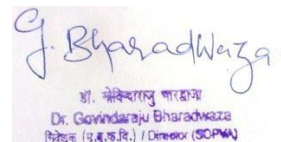 G. Bharadwaza
डॉ. गोविन्दाराजु भारद्वाजा
Dr. Govindaraju Bharadwaza
/ Director (SOPMA)